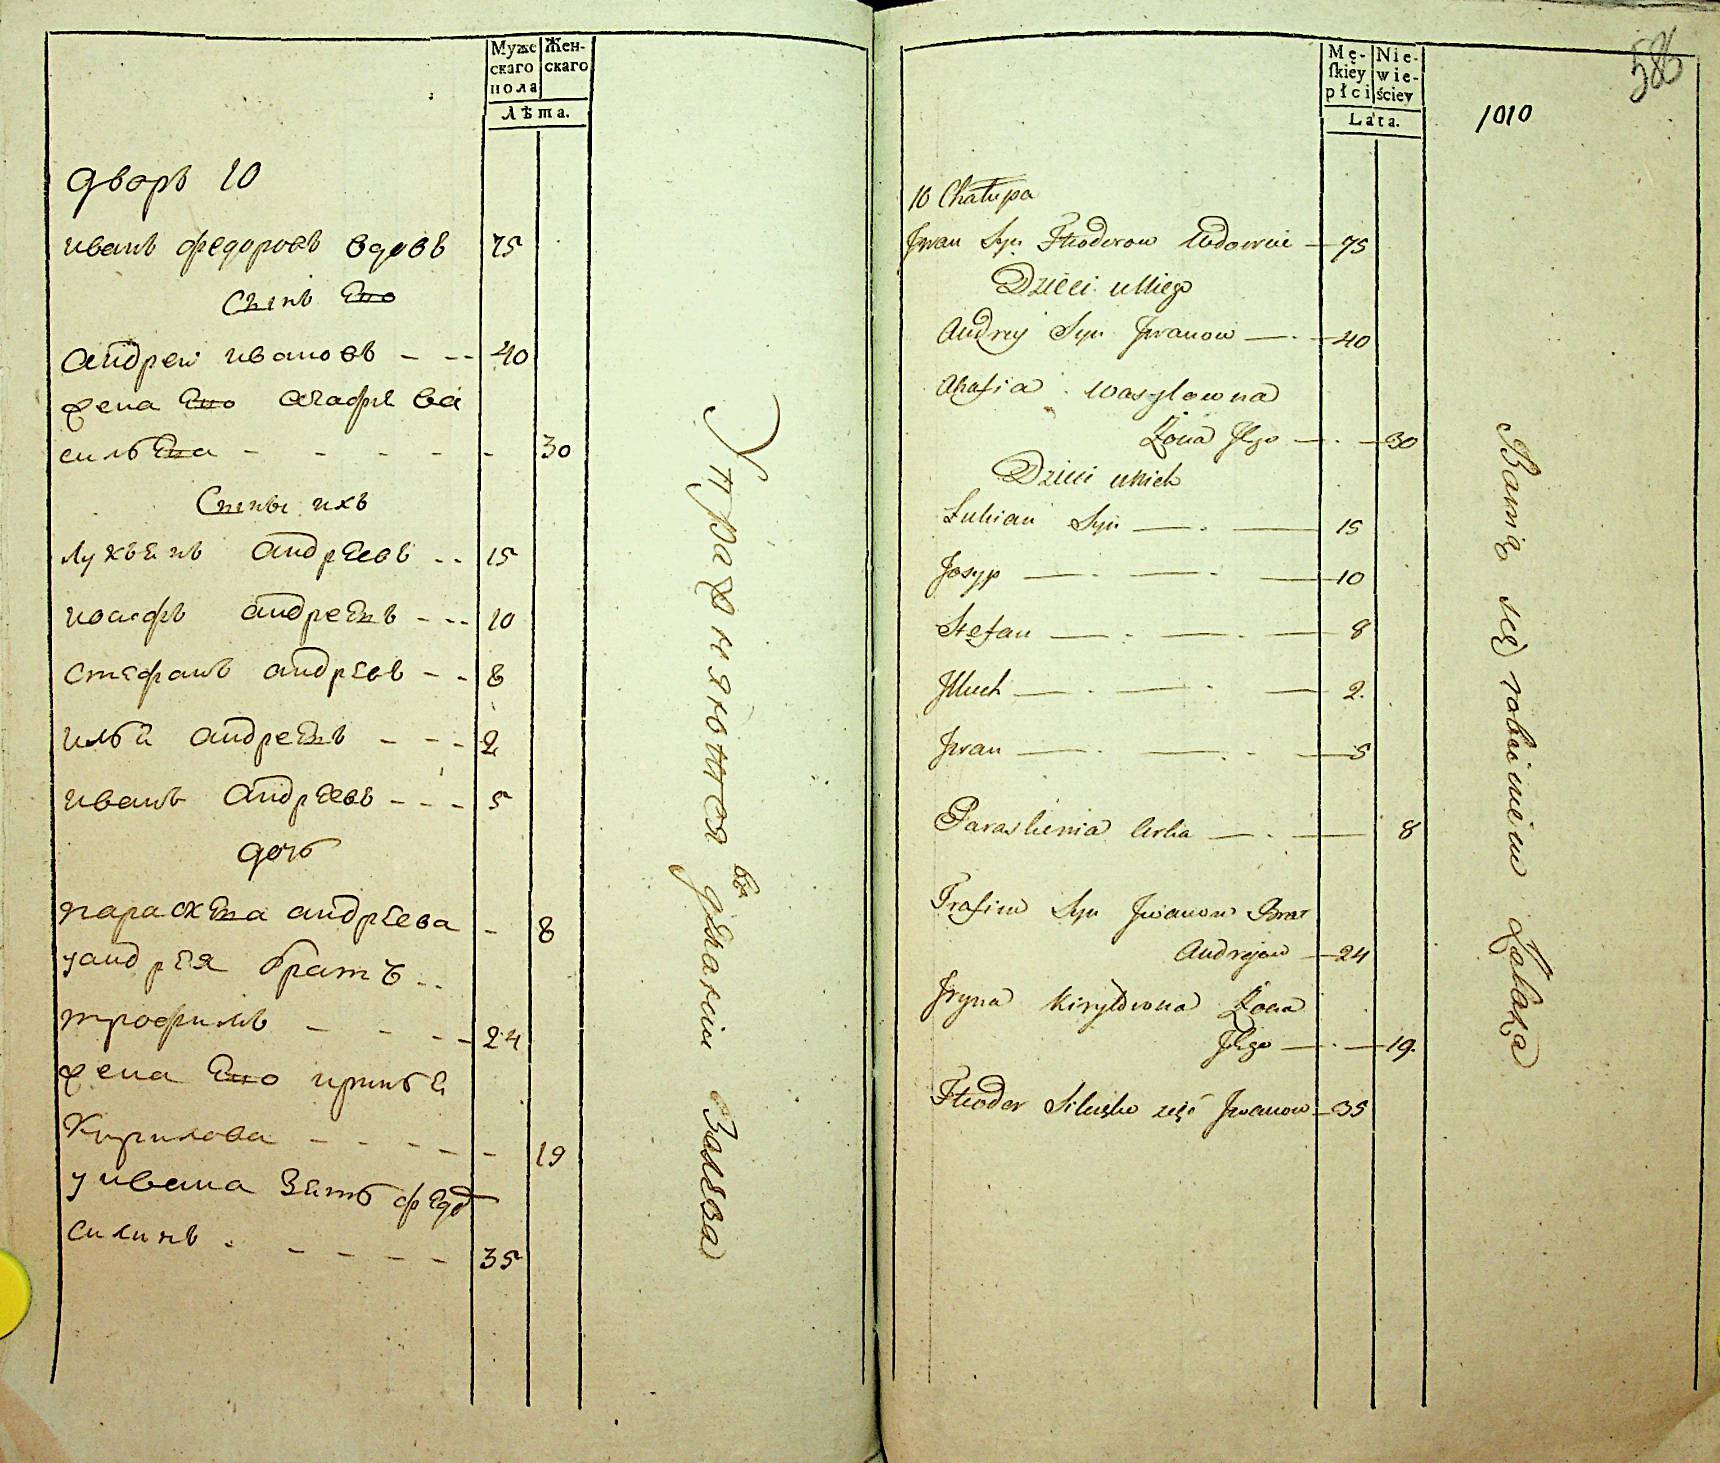 Муже Жен-
скаго скаго
пола
Лѣта.
дворъ 10
иванъ федоровъ вдовъ 75
Сынъ Ево
андреи ивановъ - - - 40
жена Ево агафья ва
сильева - - - - - 30
Сыны ихъ
лукьянъ андреевъ - - 15
иосифъ андреевъ - - - 10
стефанъ андреевъ - - 8
илья андреевъ - - - 2
иванъ андреевъ - - - 5
дочь
параскева андреева - 8
у андрея братъ - -
трофимъ - - - - 24
жена Ево иринья
Кирилова - - - - - 19
у ивана зять федор
силинъ - - - - - 35
Упражняются въ делании Залеза
586
1010
Mę- Nie-
skiey wie-
płci ściey
Lata.
10 Chałupa
Jwan Syn Fhodorow Wdowiec — 75
Dzieci u Niego
Andrey Syn Jwanow — 40
Ahafia Wasylowna
Żona Jego — 30
Dzieci u Nich
Lukian Syn — 15
Josyp — 10
Stefan — 8
Jlluch — 2
Jwan — 5
Paraskewia Corka — 8
Trofim Syn Jwanow Brat
Andrejow — 24
Jryna Kiryłowna Żona
Jego — 19
Fhodor Siluszko zięć Jwanow — 35
Bawią się robieniem Żelaza